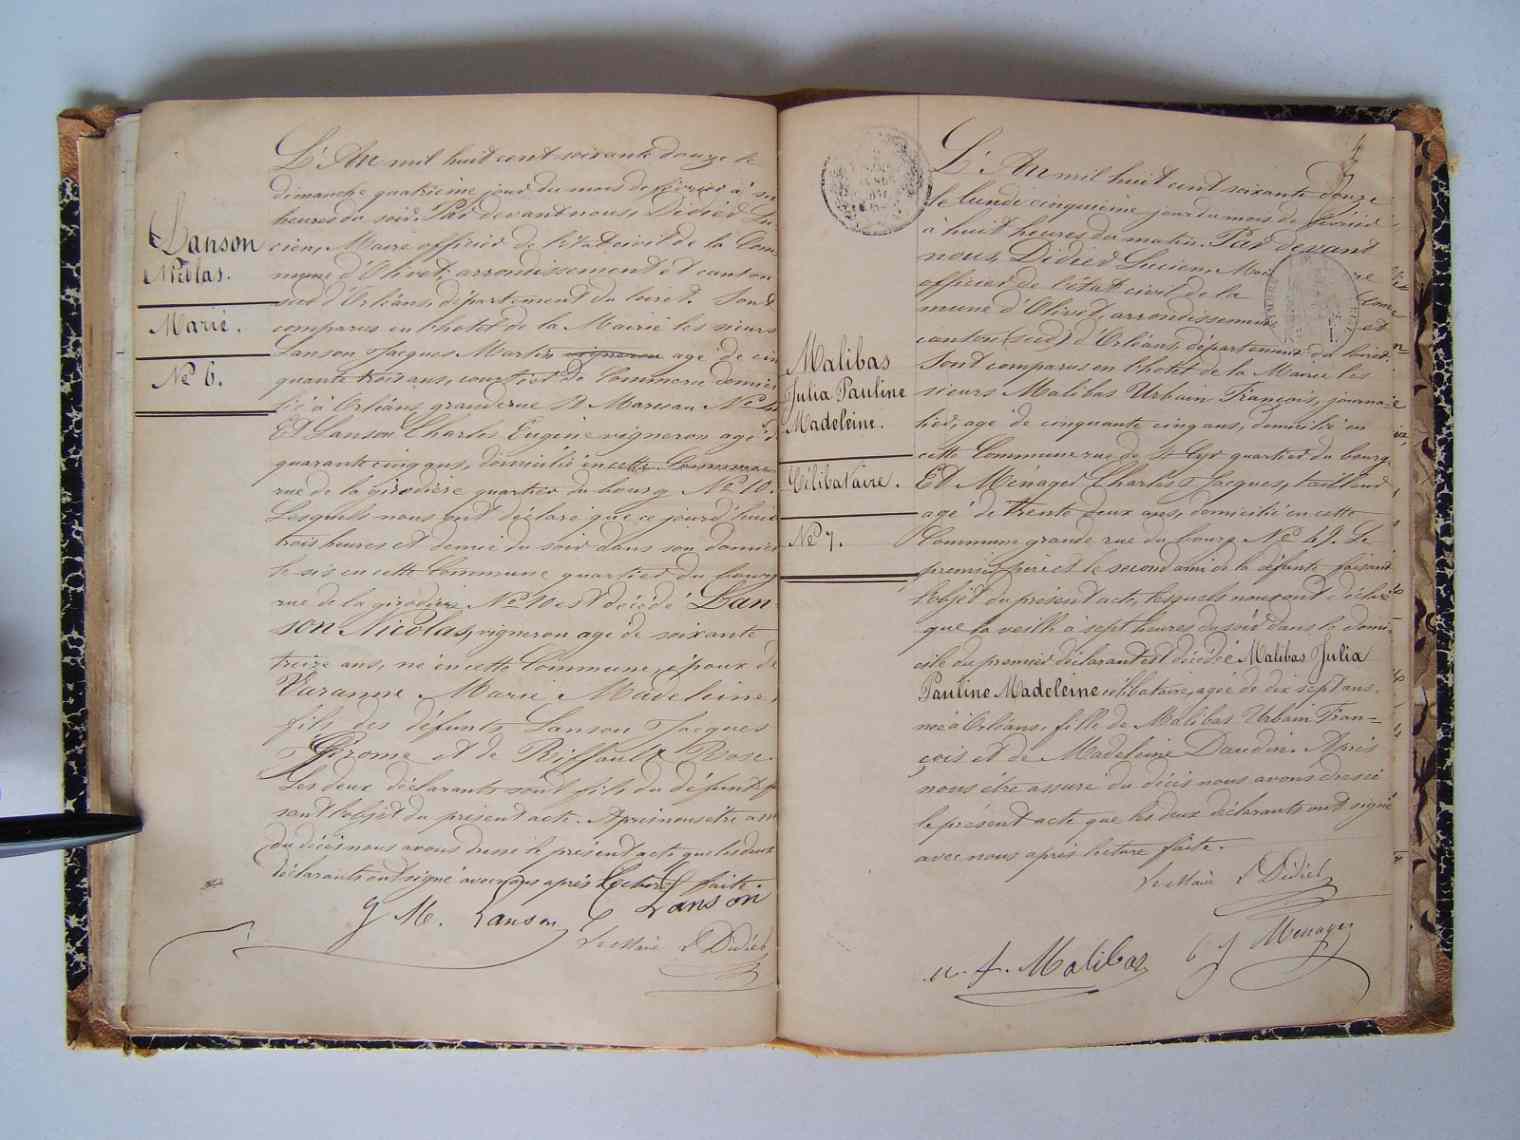 Lanson
Nicolas.
Marié.
Nº 6.
L'An mil huit cent soixante douze le
dimanche quatrième jour du mois de février à
heures du soir. Par devant nous, Didier Lu
cien, Maire officier de l'état civil de la Com
mune d'Olivet, arrondissement et canton
sud d'Orléans, département du Loiret. Sont
comparus en l'hotel de la Mairie les sieurs
Lanson Jacques Martin vigneron agé de cin
quante trois ans, courtier de Commerce domici
lié à Orléans grande rue St Marceau Nº
Et Lanson Charles Eugène vigneron agé de
quarante cinq ans, domicilié en cette Commune
rue de la girodière quartier du bourg Nº 10.
Lesquels nous ont déclaré que ce jourd'hui
trois heures et demie du soir dans son domici
le sis en cette Commune quartier du bourg
rue de la girodière Nº 10 est décédé Lan
son Nicolas, vigneron agé de soixante
treize ans, né en cette Commune, époux de
Marie Madeleine,
fils des défunts Lanson Jacques
Gérome et de Riffault Rose.
Les deux déclarants sont fils du défunt f
sant l'objet du présent acte. Après nous être ass
du décès nous avons dressé le présent acte que les deux
déclarants ont signé avec nous après lecture faite.
J M. Lanson C Lanson
Le Maire L Didier
Malibas
Julia Pauline
Madeleine.
Célibataire.
Nº 7.
L'An mil huit cent soixante douze
le lundi cinquième jour du mois de février
à huit heures du matin. Par devant
nous, Didier Lucien, Maire
officier de l'état civil de la Com
mune d'Olivet, arrondissement et
canton (sud) d'Orléans, département du Loiret.
Sont comparus en l'hotel de la Mairie les
sieurs Malibas Urbain François, journa=
lier, agé de cinquante cinq ans, domicilié en
cette Commune rue de St Cyr quartier du bourg
Et Ménager Charles Jacques, tailleur
agé de trente deux ans, domicilié en cette
Commune grande rue du bourg Nº 49. Le
premier père et le second ami de la défunte faisant
l'objet du présent acte, lesquels nous ont déclaré
que la veille à sept heures du soir dans le domi=
cile du premier déclarant est décédée Malibas Julia
Pauline Madeleine célibataire, agée de dix sept ans,
née à Orléans, fille de Malibas Urbain Fran=
çois et de Madeleine Daudin. Après
nous être assuré du décès nous avons dressé
le présent acte que les deux déclarants ont signé
avec nous après lecture faite.
Le Maire L Didier
u. f. Malibas C J Menager